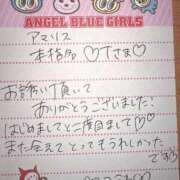 ANGEL BLUE GIRLS
アマリス
本指名 ♡Tさま♡
お誘い頂いて
ありがとうございました!
はじめましてと二度目まして♡
また会えてとってもうれしかった
です